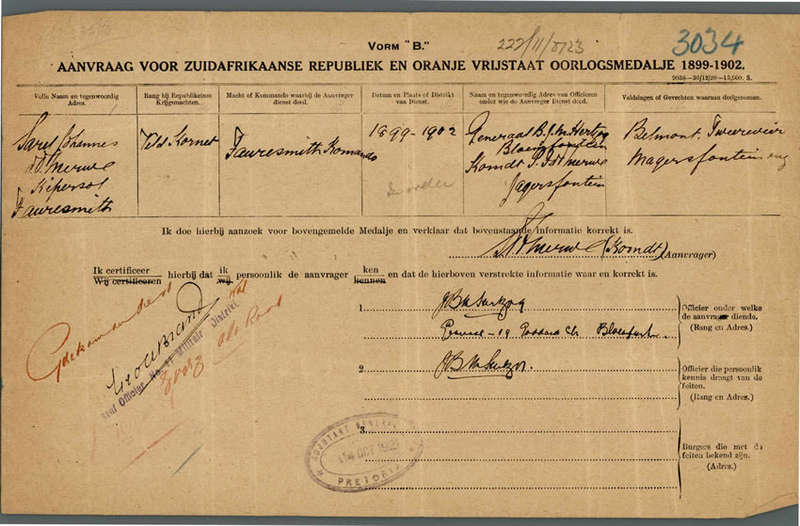 VORM "B."
222/11/8123
3034
AANVRAAG VOOR ZUIDAFRIKAANSE REPUBLIEK EN ORANJE VRIJSTAAT OORLOGSMEDALJE 1899-1902.
Volle Naam en tegenwoordig Adres.
Rang bij Republikeinse Krijgsmachten.
Macht of Kommando waarbij de Aanvrager dienst deed.
Datum en Plaats of Distrikt van Dienst.
Naam en tegenwoordig Adres van Officieren onder wie de Aanvrager Dienst deed.
Veldslagen of Gevechten waaraan deelgenomen.
Sarel Johannes
v.d. Merwe
Kipersol
Fauresmith
Veld Kornet
Fauresmith Komando
1899-1902
Generaal B.J.M. Hertzog
Bloemfontein
Komdt P. v.d. Merwe
Jagersfontein
Belmont. Tweerevier
Magersfontein enz
Ik doe hierbij aanzoek voor bovengemelde Medalje en verklaar dat bovenstaande informatie korrekt is.
v.d. Merwe (Komdt)
(Aanvrager)
Ik certificeer hierbij dat ik persoonlik de aanvrager ken en dat de hierboven verstrekte informatie waar en korrekt is.
Wij certificeren wij kennen
1.
JBM Hertzog
Officier onder welke de aanvrager diende.
(Rang en Adres.)
2.
JBM Hertzog.
Officier die persoonlik kennis draagt van de feiten.
(Rang en Adres.)
3.
Burgers die met de feiten bekend zijn.
(Adres.)
PRETORIA